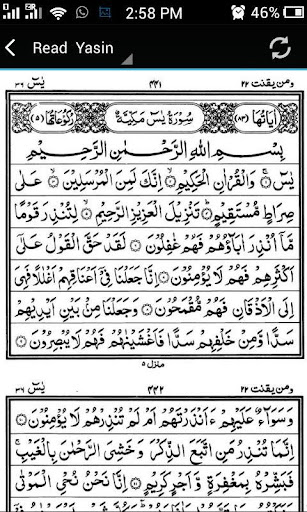 2:58 PM 46%
Read Yasin
ومن يقنت ٢٢ ٤٤١ يٰسٓ ٣٦
اٰيَاتُهَا (٨٣) سُوْرَةُ يٰسٓ مَكِّيَّةٌ رُكُوْعَاتُهَا (٥)
بِسْمِ اللّٰهِ الرَّحْمٰنِ الرَّحِيْمِ
يٰسٓ ۝ وَالْقُرْاٰنِ الْحَكِيْمِ ۝ اِنَّكَ لَمِنَ الْمُرْسَلِيْنَ ۝ عَلٰى
صِرَاطٍ مُّسْتَقِيْمٍ ۝ تَنْزِيْلَ الْعَزِيْزِ الرَّحِيْمِ ۝ لِتُنْذِرَ قَوْمًا
مَّاۤ اُنْذِرَ اٰبَآؤُهُمْ فَهُمْ غٰفِلُوْنَ ۝ لَقَدْ حَقَّ الْقَوْلُ عَلٰۤى
اَكْثَرِهِمْ فَهُمْ لَا يُؤْمِنُوْنَ ۝ اِنَّا جَعَلْنَا فِيْۤ اَعْنَاقِهِمْ اَغْلٰلًا فَهِيَ
اِلَى الْاَذْقَانِ فَهُمْ مُّقْمَحُوْنَ ۝ وَجَعَلْنَا مِنْۢ بَيْنِ اَيْدِيْهِمْ
سَدًّا وَّمِنْ خَلْفِهِمْ سَدًّا فَاَغْشَيْنٰهُمْ فَهُمْ لَا يُبْصِرُوْنَ ۝
منزل ٥
ومن يقنت ٢٢ ٤٤٢ يٰسٓ ٣٦
وَسَوَآءٌ عَلَيْهِمْ ءَاَنْذَرْتَهُمْ اَمْ لَمْ تُنْذِرْهُمْ لَا يُؤْمِنُوْنَ ۝
اِنَّمَا تُنْذِرُ مَنِ اتَّبَعَ الذِّكْرَ وَخَشِيَ الرَّحْمٰنَ بِالْغَيْبِ ۚ
فَبَشِّرْهُ بِمَغْفِرَةٍ وَّاَجْرٍ كَرِيْمٍ ۝ اِنَّا نَحْنُ نُحْيِ الْمَوْتٰى